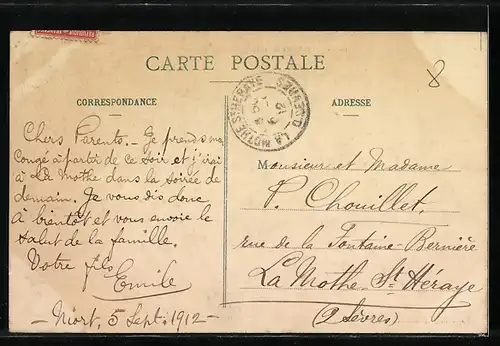 CARTE POSTALE
8
CORRESPONDANCE
ADRESSE
LA MOTHE-ST-HÉRAYE
D. SÈVRES
Chers Parents._ Je prends mon
congé à partir de ce soir et j'irai
à La Mothe dans la soirée de
demain. Je vous dis donc
à bientôt et vous envoie le
salut de la famille.
Votre fils
Emile
_ Niort, 5 Sept: 1912 _
Monsieur et Madame
P. Chouillet,
rue de la Fontaine-Bernière
La Mothe St Héraye
(2 Sèvres)